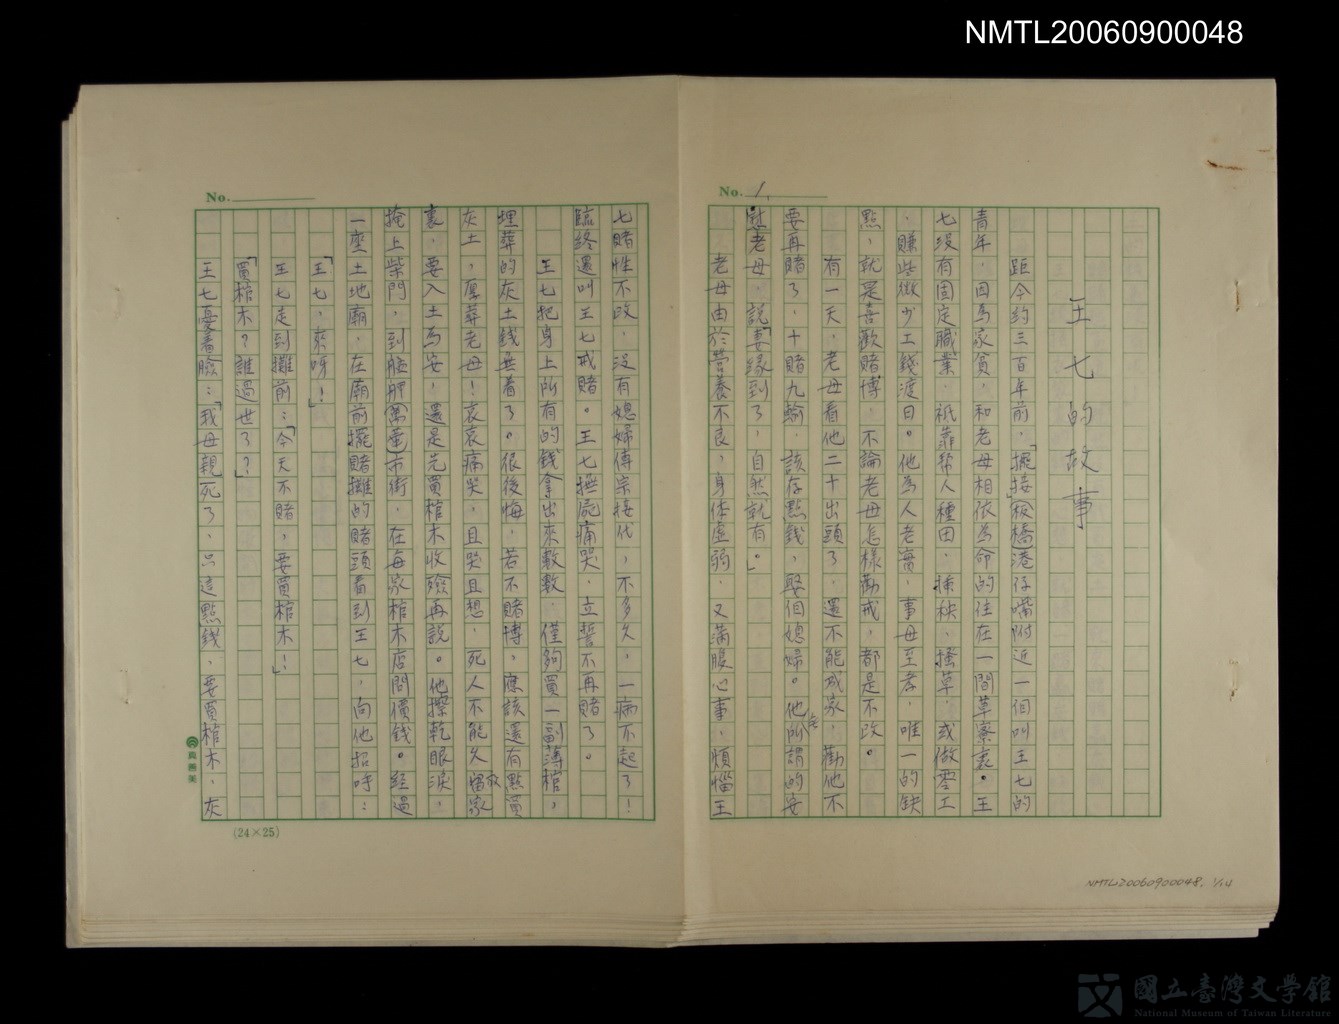 NMTL20060900048
No. 1
王七的故事
距今約三百年前,「擺接」(板橋)港仔嘴附近一個叫王七的
青年,因為家貧,和老母相依為命的住在一間草寮裏。王
七沒有固定職業,祇靠幫人種田,插秧,搔草,或做零工
,賺些微少工錢渡日。他為人老實,事母至孝,唯一的缺
點,就是喜歡賭博,不論老母怎樣勸戒,都是不改。
有一天,老母看他二十出頭了,還不能成家,勸他不
要再賭了,十賭九輸,該存點錢,娶個媳婦。他所謂的安
慰老母,說「妻緣到了,自然就有。」
老母由於營養不良,身体虛弱,又滿腹心事,煩惱王
No.
七賭性不改,沒有媳婦傳宗接代,不多久,一病不起了!
臨終還叫王七戒賭。王七撫屍痛哭,立誓不再賭了。
王七把身上所有的錢拿出來數數,僅夠買一副薄棺,
埋葬的灰土錢無着了。很後悔,若不賭博,應該還有點買
灰土,厚葬老母!哀哀痛哭,且哭且想,死人不能久留放家
裏,要入土為安,還是先買棺木收殮再說。他擦乾眼淚,
掩上柴門,到艋舺(萬華)市街,在每家棺木店問價錢。經過
一座土地廟,在廟前擺賭攤的賭頭看到王七,向他招呼:
「王七,來呀!」
王七走到攤前:「今天不賭,要買棺木!」
「買棺木?誰過世了?」
王七憂着臉:「我母親死了,只這點錢,要買棺木,灰
(24×25)
NMTL20060900048, 1/14
國立臺灣文學館
National Museum of Taiwan Literature